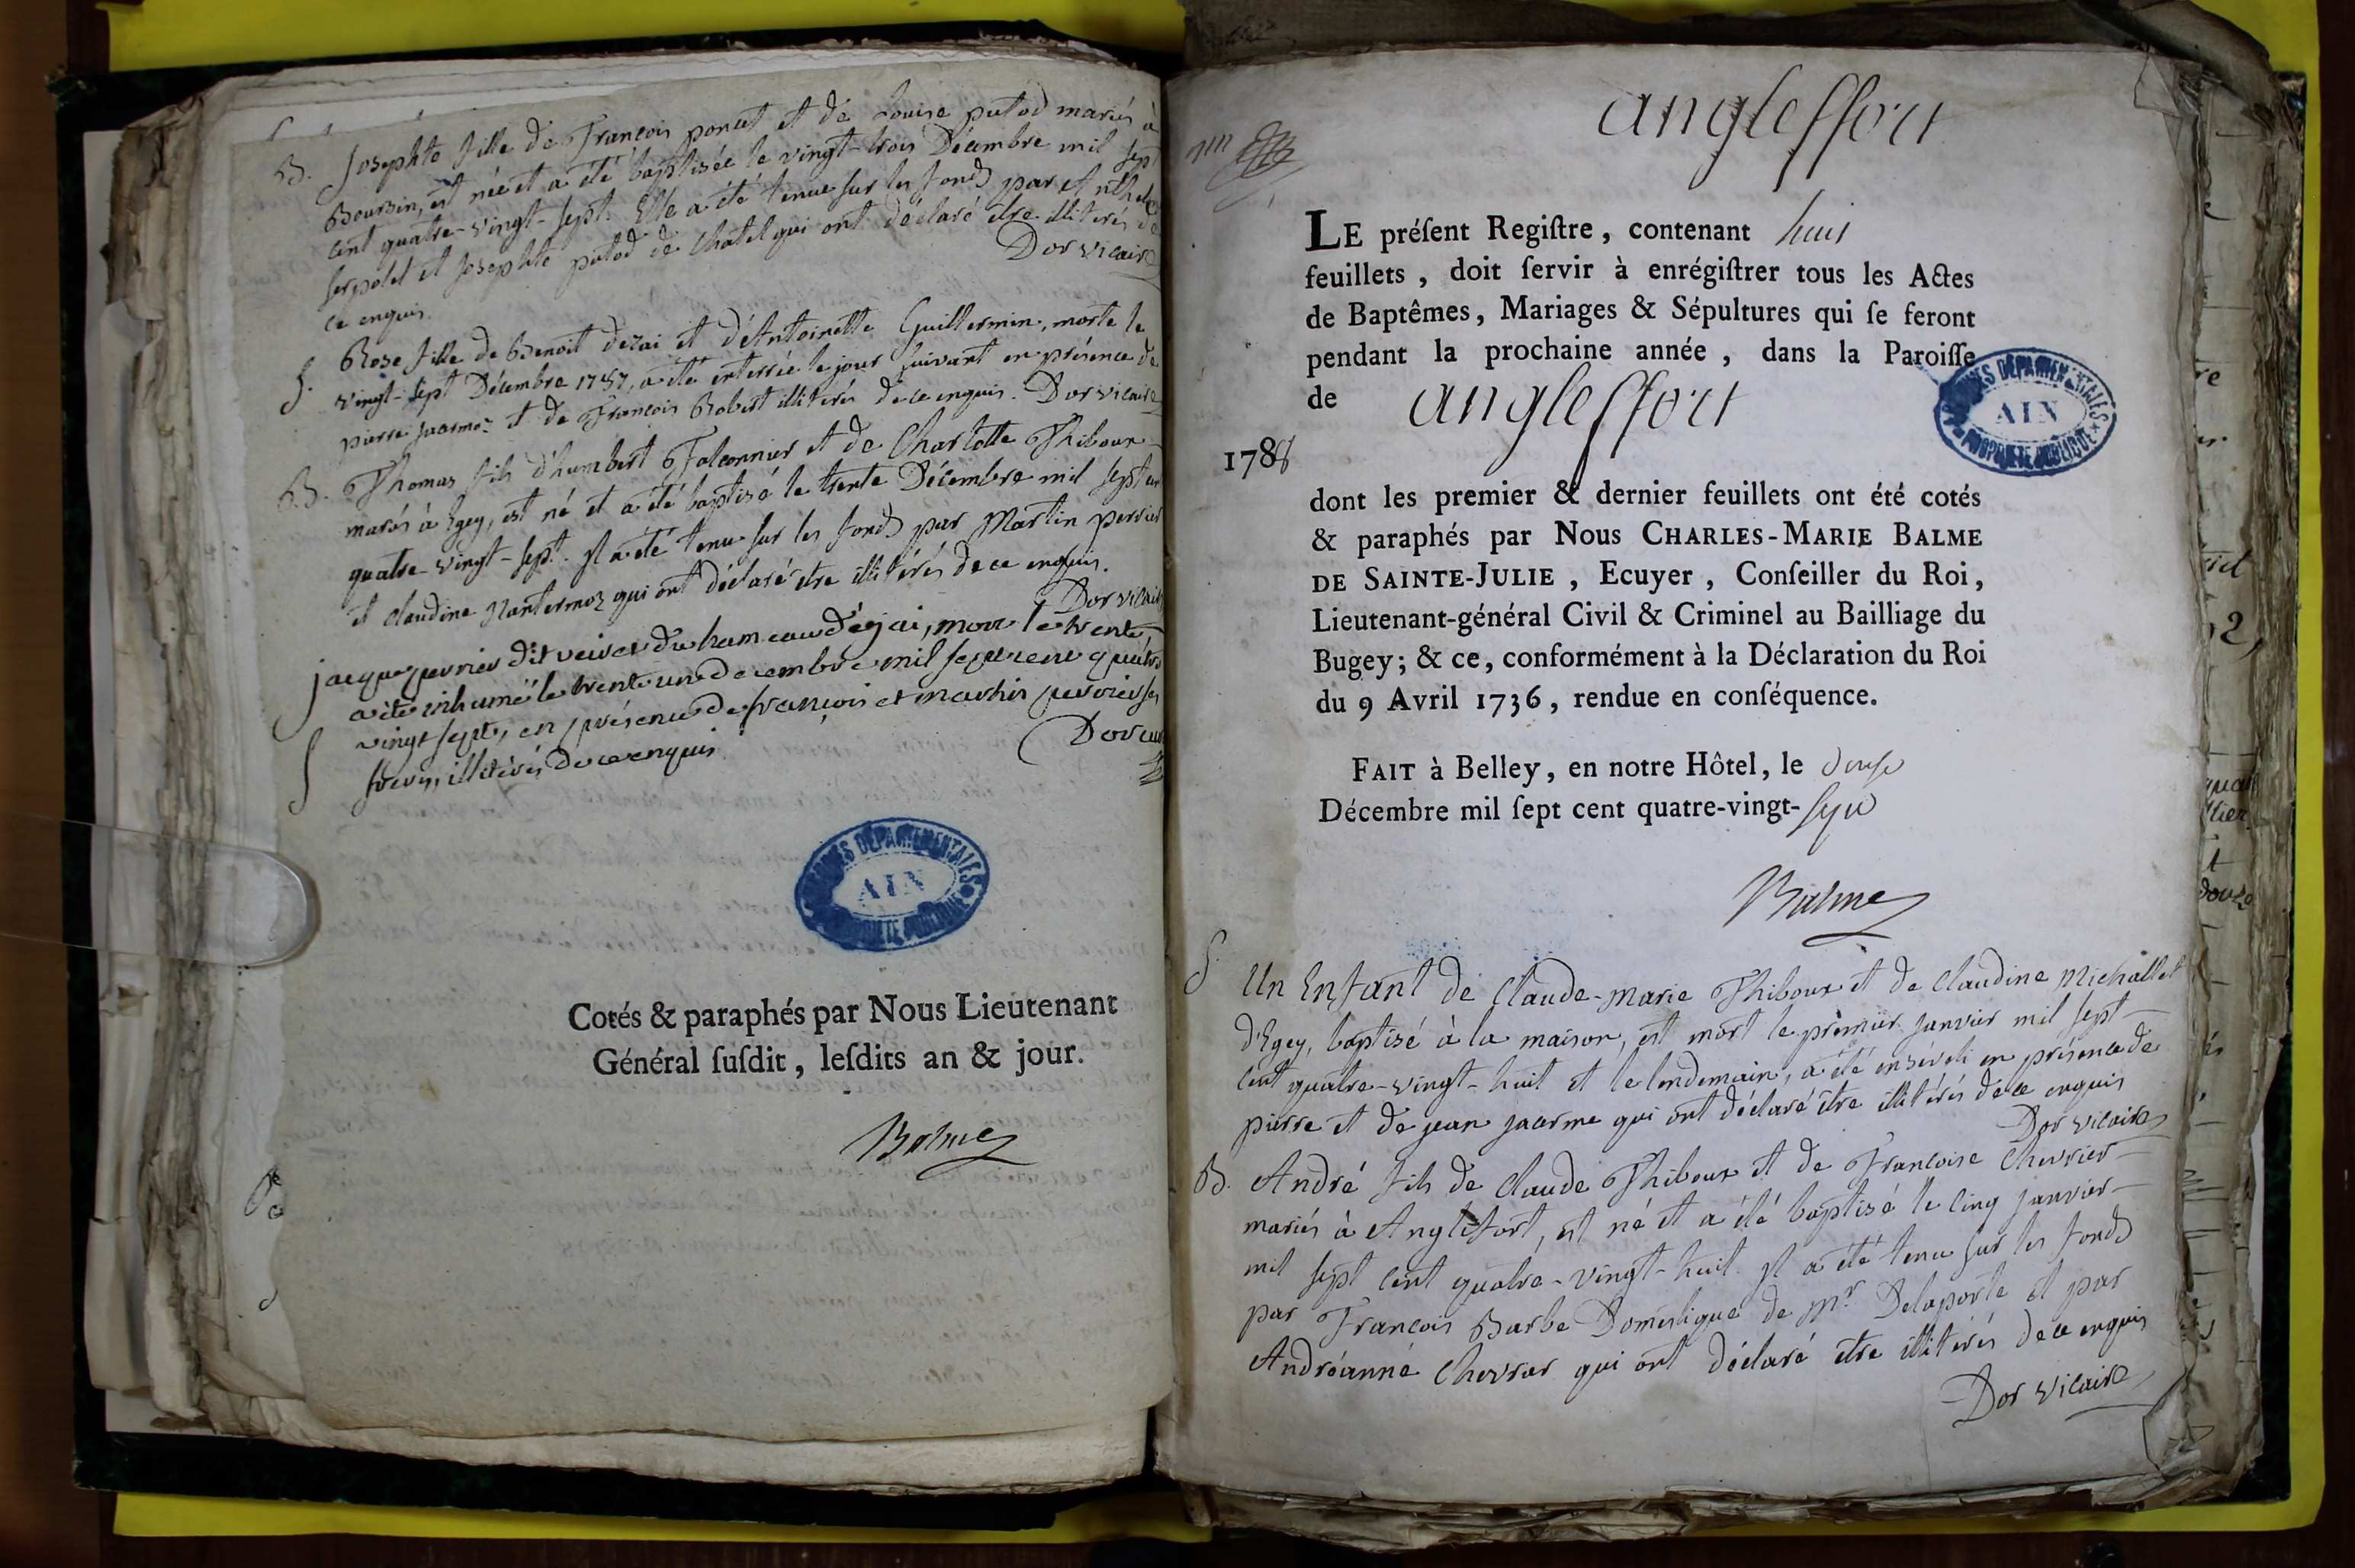 B. Josephte fille de François poncet et de Louise putod mariés à
Boursin, est née et a été baptisée le vingt-trois Décembre mil sept
cent quatre-vingt-sept. Elle a été tenue sur les fonds par
serpolet et Josephte putod de Chatel qui ont déclaré être illitérés de
ce enquis.
Dor vicaire
S. Rose fille de Benoit dezai et d'Antoinette Guillermin, morte le
vingt-sept Décembre 1787, a été enterrée le jour suivant en présence de
pierre jacarmoz et de François Robert illitérés de ce enquis. Dor vicaire
B. Thomas fils d'humbert Falconnier et de Charlotte Thiboux
mariés à Egey, est né et a été baptisé le trente Décembre mil sept cent
quatre-vingt-sept. Il a été tenu sur les fonds par Martin perrier
et Claudine Nantermoz qui ont déclaré être illitérés de ce enquis.
Dor vicaire
jacque perrier dit du hameau d'éjai, mort le trente,
a été inhumé le trente un decembre mil sept cent quatre
vingt sept, en présence de françois et martin perrier ses
S freres, illitérés de ce enquis
Dor curé
ARCHIVES DÉPARTEMENTALES
AIN
PROPRIÉTÉ PUBLIQUE
Cotés & paraphés par Nous Lieutenant
Général ſuſdit, leſdits an & jour.
Balme
angleffort
LE préſent Regiſtre, contenant huit
feuillets, doit ſervir à enrégiſtrer tous les Actes
de Baptêmes, Mariages & Sépultures qui ſe feront
pendant la prochaine année, dans la Paroiſſe
de angleffort
1788
ARCHIVES DÉPARTEMENTALES
AIN
PROPRIÉTÉ PUBLIQUE
dont les premier & dernier feuillets ont été cotés
& paraphés par Nous CHARLES-MARIE BALME
DE SAINTE-JULIE, Ecuyer, Conſeiller du Roi,
Lieutenant-général Civil & Criminel au Bailliage du
Bugey; & ce, conformément à la Déclaration du Roi
du 9 Avril 1736, rendue en conſéquence.
FAIT à Belley, en notre Hôtel, le douse
Décembre mil ſept cent quatre-vingt-sept
Balme
S. Un Enfant de Claude-Marie Thiboux et de Claudine Michallet
d'Egey, baptisé à la maison, est mort le premier janvier mil sept
cent quatre-vingt-huit et le lendemain, a été enséveli en présence de
pierre et de jean jacarme qui ont déclaré être illitérés de ce enquis
Dor vicaire
B. André fils de Claude Thiboux et de Françoise Chevrier
mariés à Anglefort, est né et a été baptisé le cinq janvier
mil sept cent quatre-vingt-huit. Il a été tenu sur les fonds
par François Barbe Domestique de Mr Delaporte et par
Andréanne Chevrier qui ont déclaré être illitérés de ce enquis
Dor vicaire